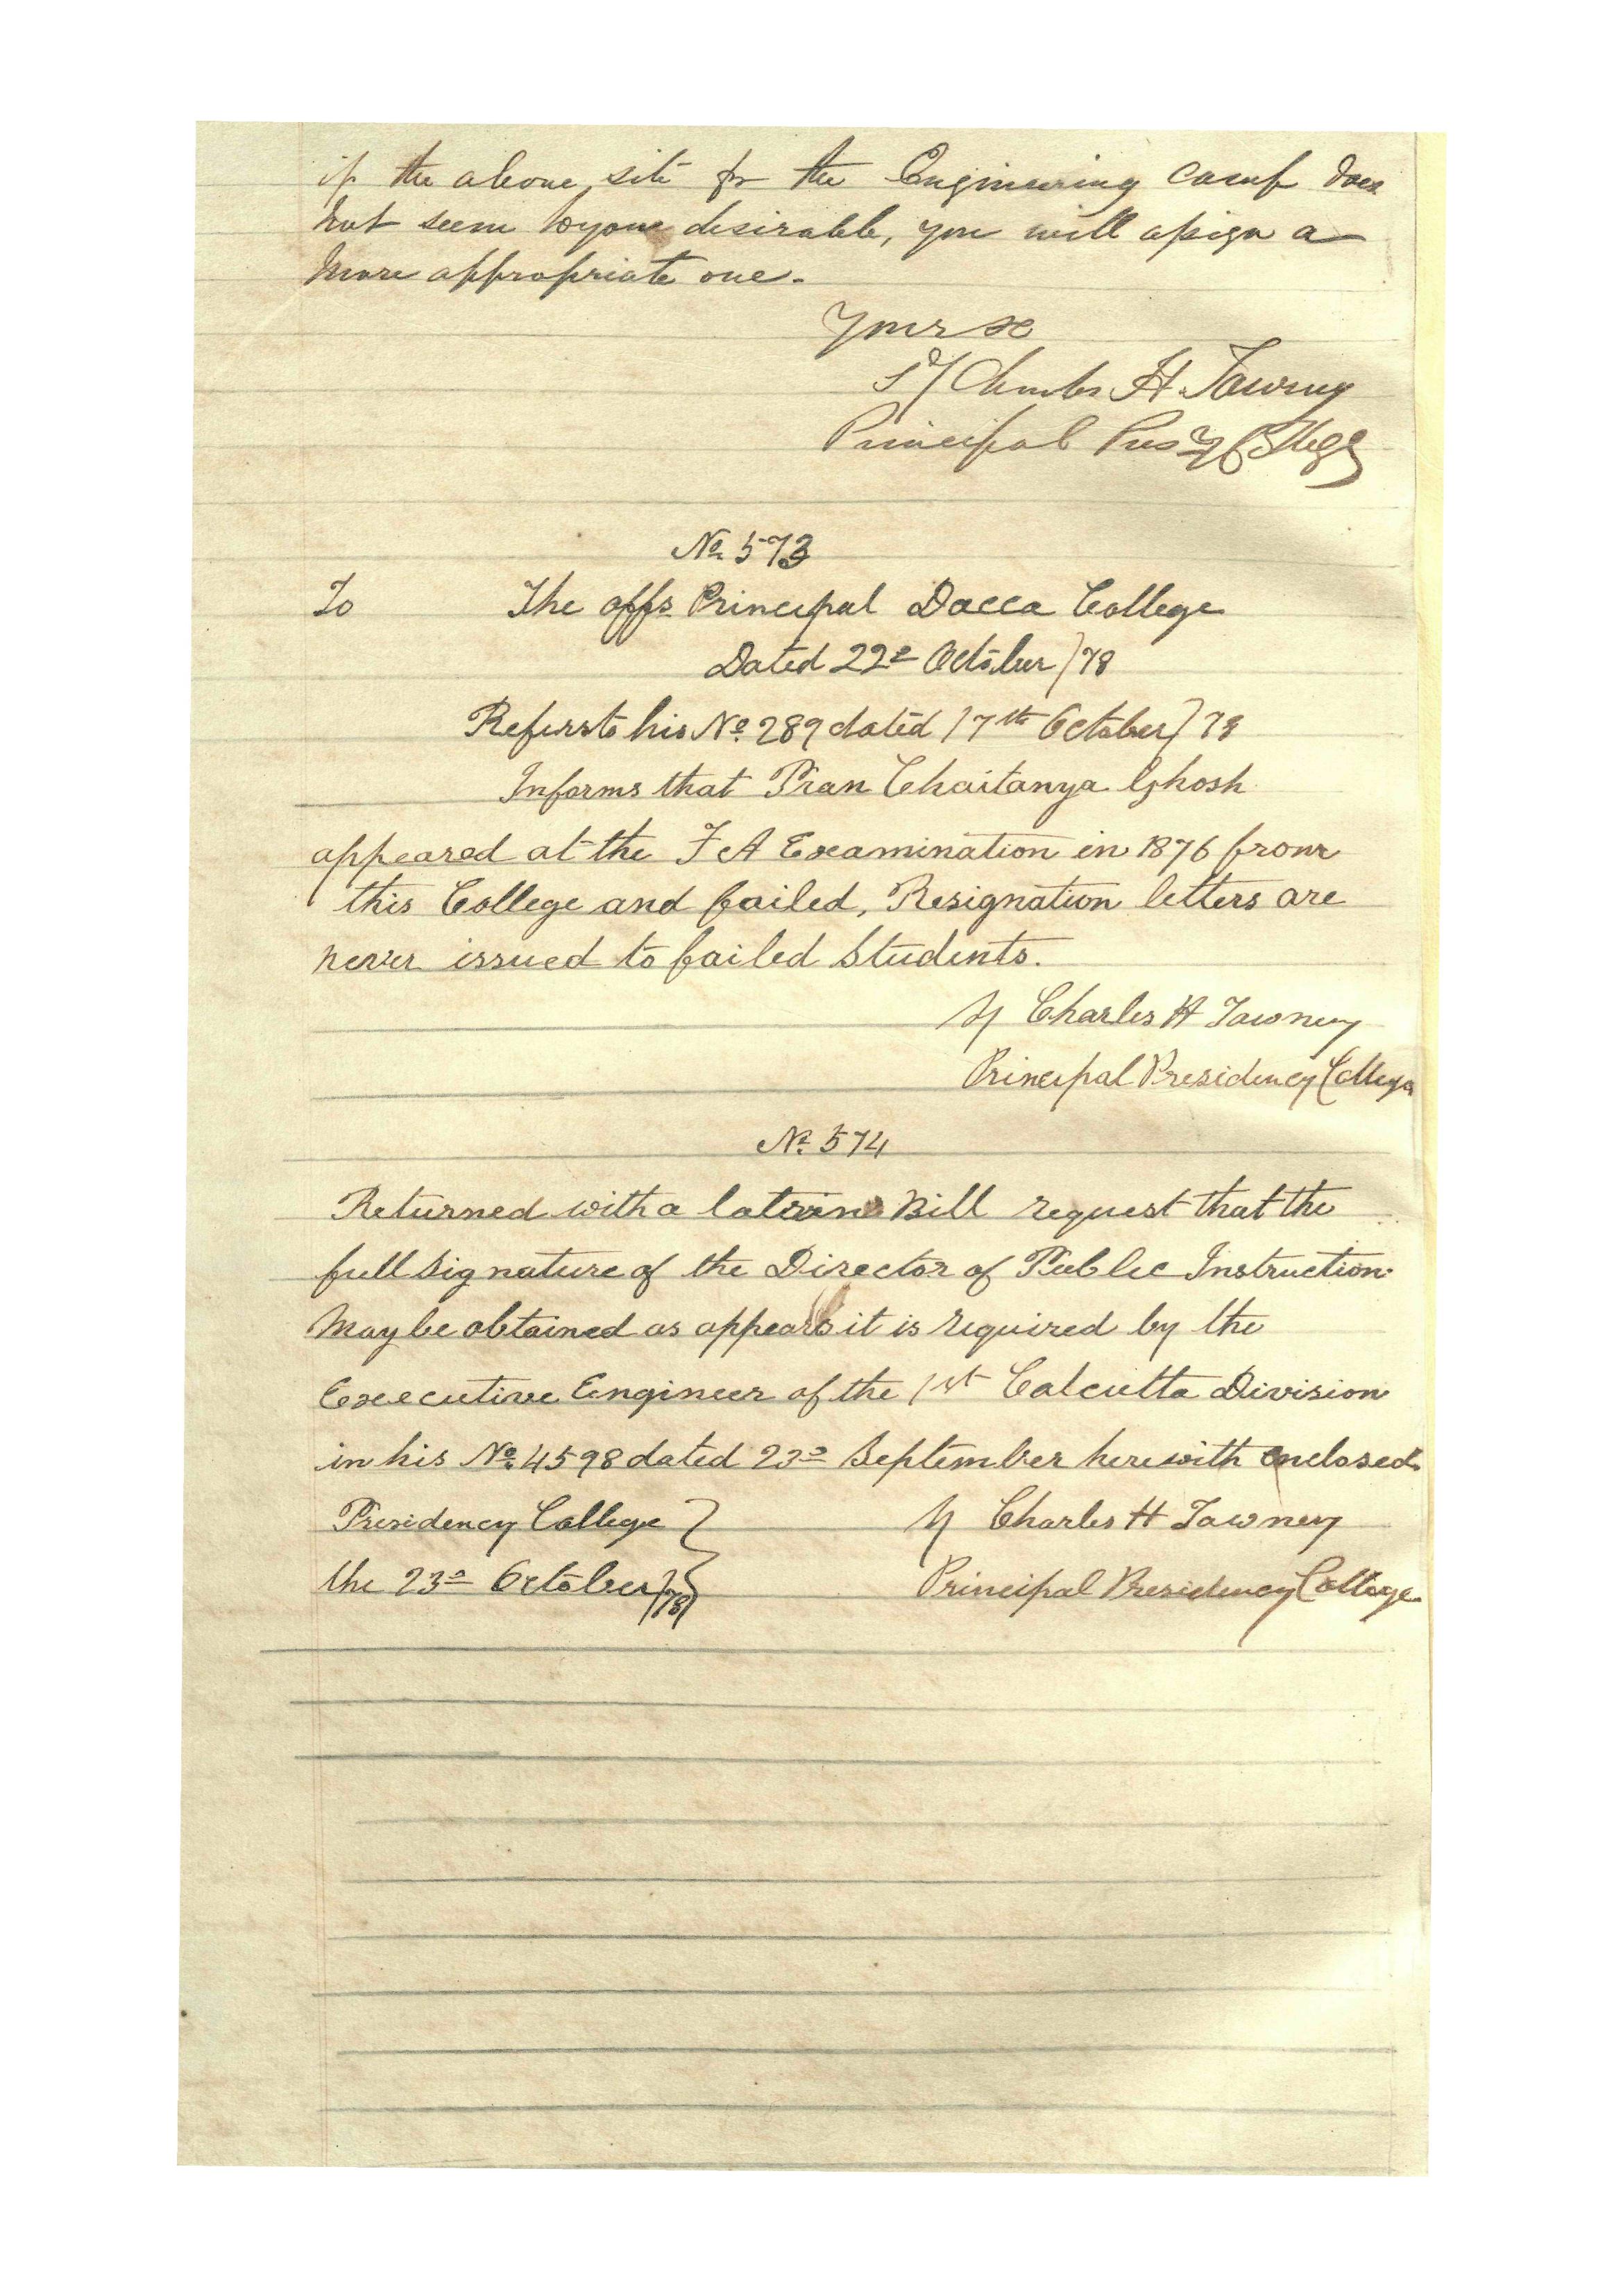 if the above, site for the Engineering Camp does
not seem to you desirable, you will assign a
more appropriate one.
Yours &c
Sd/ Charles H. Tawney
Principal Presy College
No. 573
To The offg. Principal Dacca College
Dated 22d October/78
Refers to his No. 289 dated 17th October/78
Informs that Pran Chaitanya Ghosh
appeared at the F A Examination in 1876 from
this College and failed, Resignation letters are
never issued to failed Students.
Sd/ Charles H Tawney
Principal Presidency College
No. 574
Returned with a latrine Bill request that the
full Signature of the Director of Public Instruction
May be obtained as appears it is required by the
Executive Engineer of the 1st Calcutta Division
in his No. 4598 dated 23d September herewith enclosed.
Presidency College } Sd/ Charles H Tawney
the 23d October/78 } Principal Presidency College